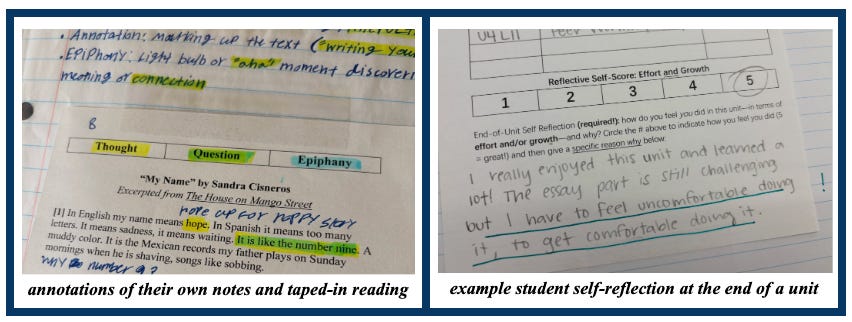 • Annotation: marking up the text ("writing you
• Epiphany: Light bulb or "aha" moment discoveri
meaning or connection
8
Thought Question Epiphany
"My Name" by Sandra Cisneros
Excerpted from The House on Mango Street
hope up for happy story
[1] In English my name means hope. In Spanish it means too many
letters. It means sadness, it means waiting. It is like the number nine. A
muddy color. It is the Mexican records my father plays on Sunday
mornings when he is shaving, songs like sobbing.
why number 9?
annotations of their own notes and taped-in reading
U4 L11
Reflective Self-Score: Effort and Growth
1 2 3 4 5
End-of-Unit Self Reflection (required!): how do you feel you did in this unit—in terms of
effort and/or growth—and why? Circle the # above to indicate how you feel you did (5
= great!) and then give a specific reason why below.
I really enjoyed this unit and learned a
lot! The essay part is still challenging
but I have to feel uncomfortable doing
it, to get comfortable doing it. !
example student self-reflection at the end of a unit